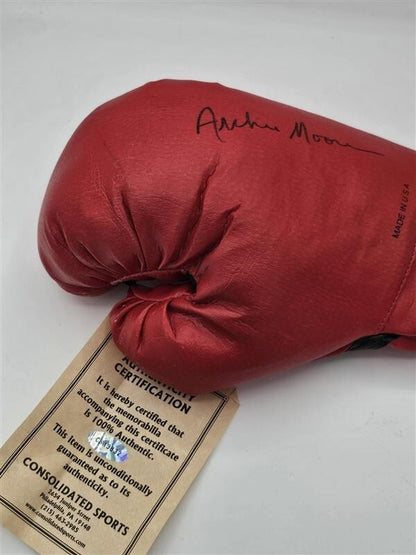 Archie Moore
MADE IN U.S.A
AUTHENTICITY
CERTIFICATION
It is hereby certified that
the memorabilia
accompanying this certificate
is 100% Authentic.
This item is unconditionally
guaranteed as to its
authenticity.
CONSOLIDATED SPORTS
5654 Juniper Street
Philadelphia, PA 19148
(215) 463-2985
www.consolidatedsports.com